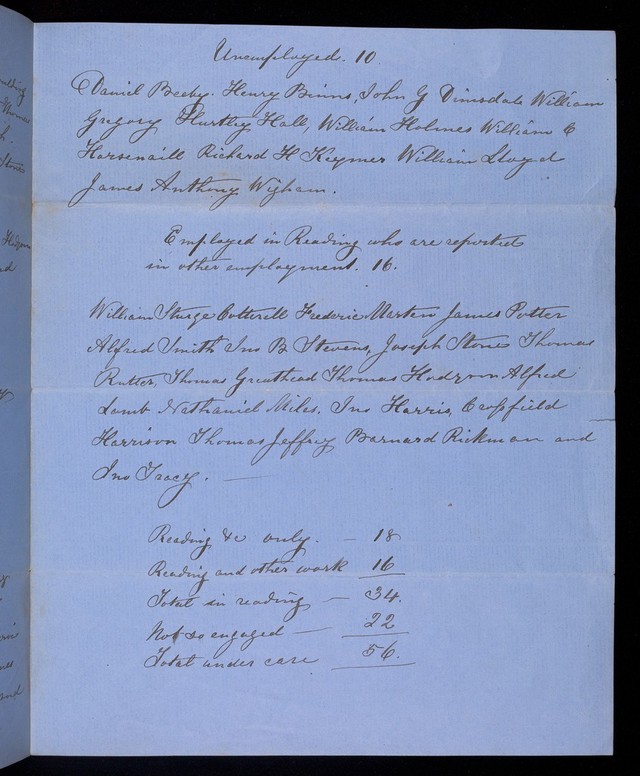 Unemployed. 10
Daniel Beeby. Henry Binns, John G Dimsdale William
Gregory Hurtley Hall, William Holmes William C
Horsenaill Richard H Keymer William Lloyd
James Anthony Wigham.
Employed in Reading who are reported
in other employment. 16.
William Sturge Cotterell Frederic Marten James Potter
Alfred Smith Jno B Stevens, Joseph Stone Thomas
Rutter, Thomas Greathead Thomas Hodgson Alfred
Lamb Nathaniel Miles, Jno Harris, Crosfield
Harrison Thomas Jeffrey Barnard Rickman and
Jno Tracy.
Reading &c only. — 18
Reading and other work 16
Total in reading — 34.
Not so engaged — 22
Total under care 56.